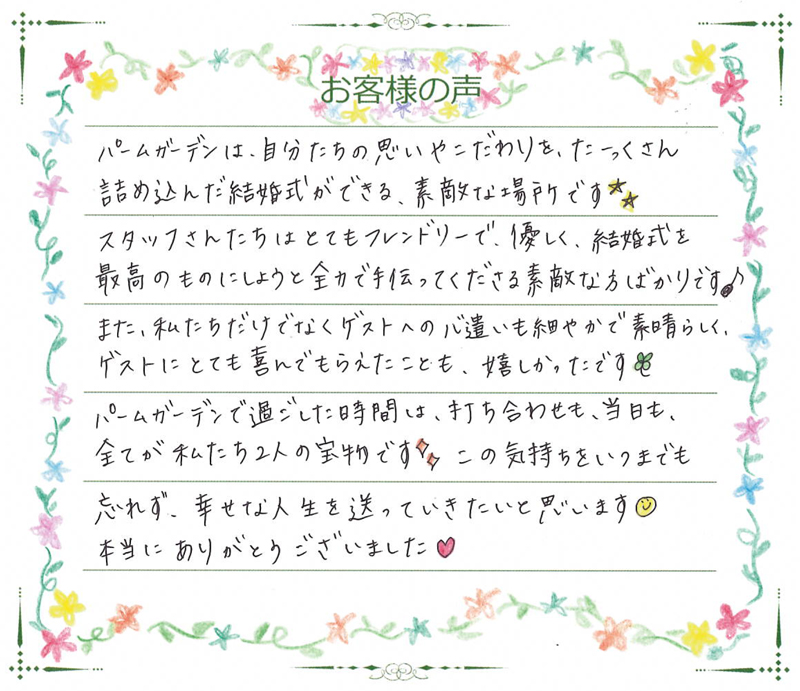 お客様の声
パームガーデンは、自分たちの思いやこだわりを、たーっくさん
詰め込んだ結婚式ができる、素敵な場所です
スタッフさんたちはとてもフレンドリーで、優しく、結婚式を
最高のものにしようと全力で手伝ってくださる素敵な方ばかりです♪
また、私たちだけでなくゲストへの心遣いも細やかで素晴らしく、
ゲストにとても喜んでもらえたことも、嬉しかったです
パームガーデンで過ごした時間は、打ち合わせも、当日も、
全てが私たち2人の宝物です この気持ちをいつまでも
忘れず、幸せな人生を送っていきたいと思います
本当にありがとうございました